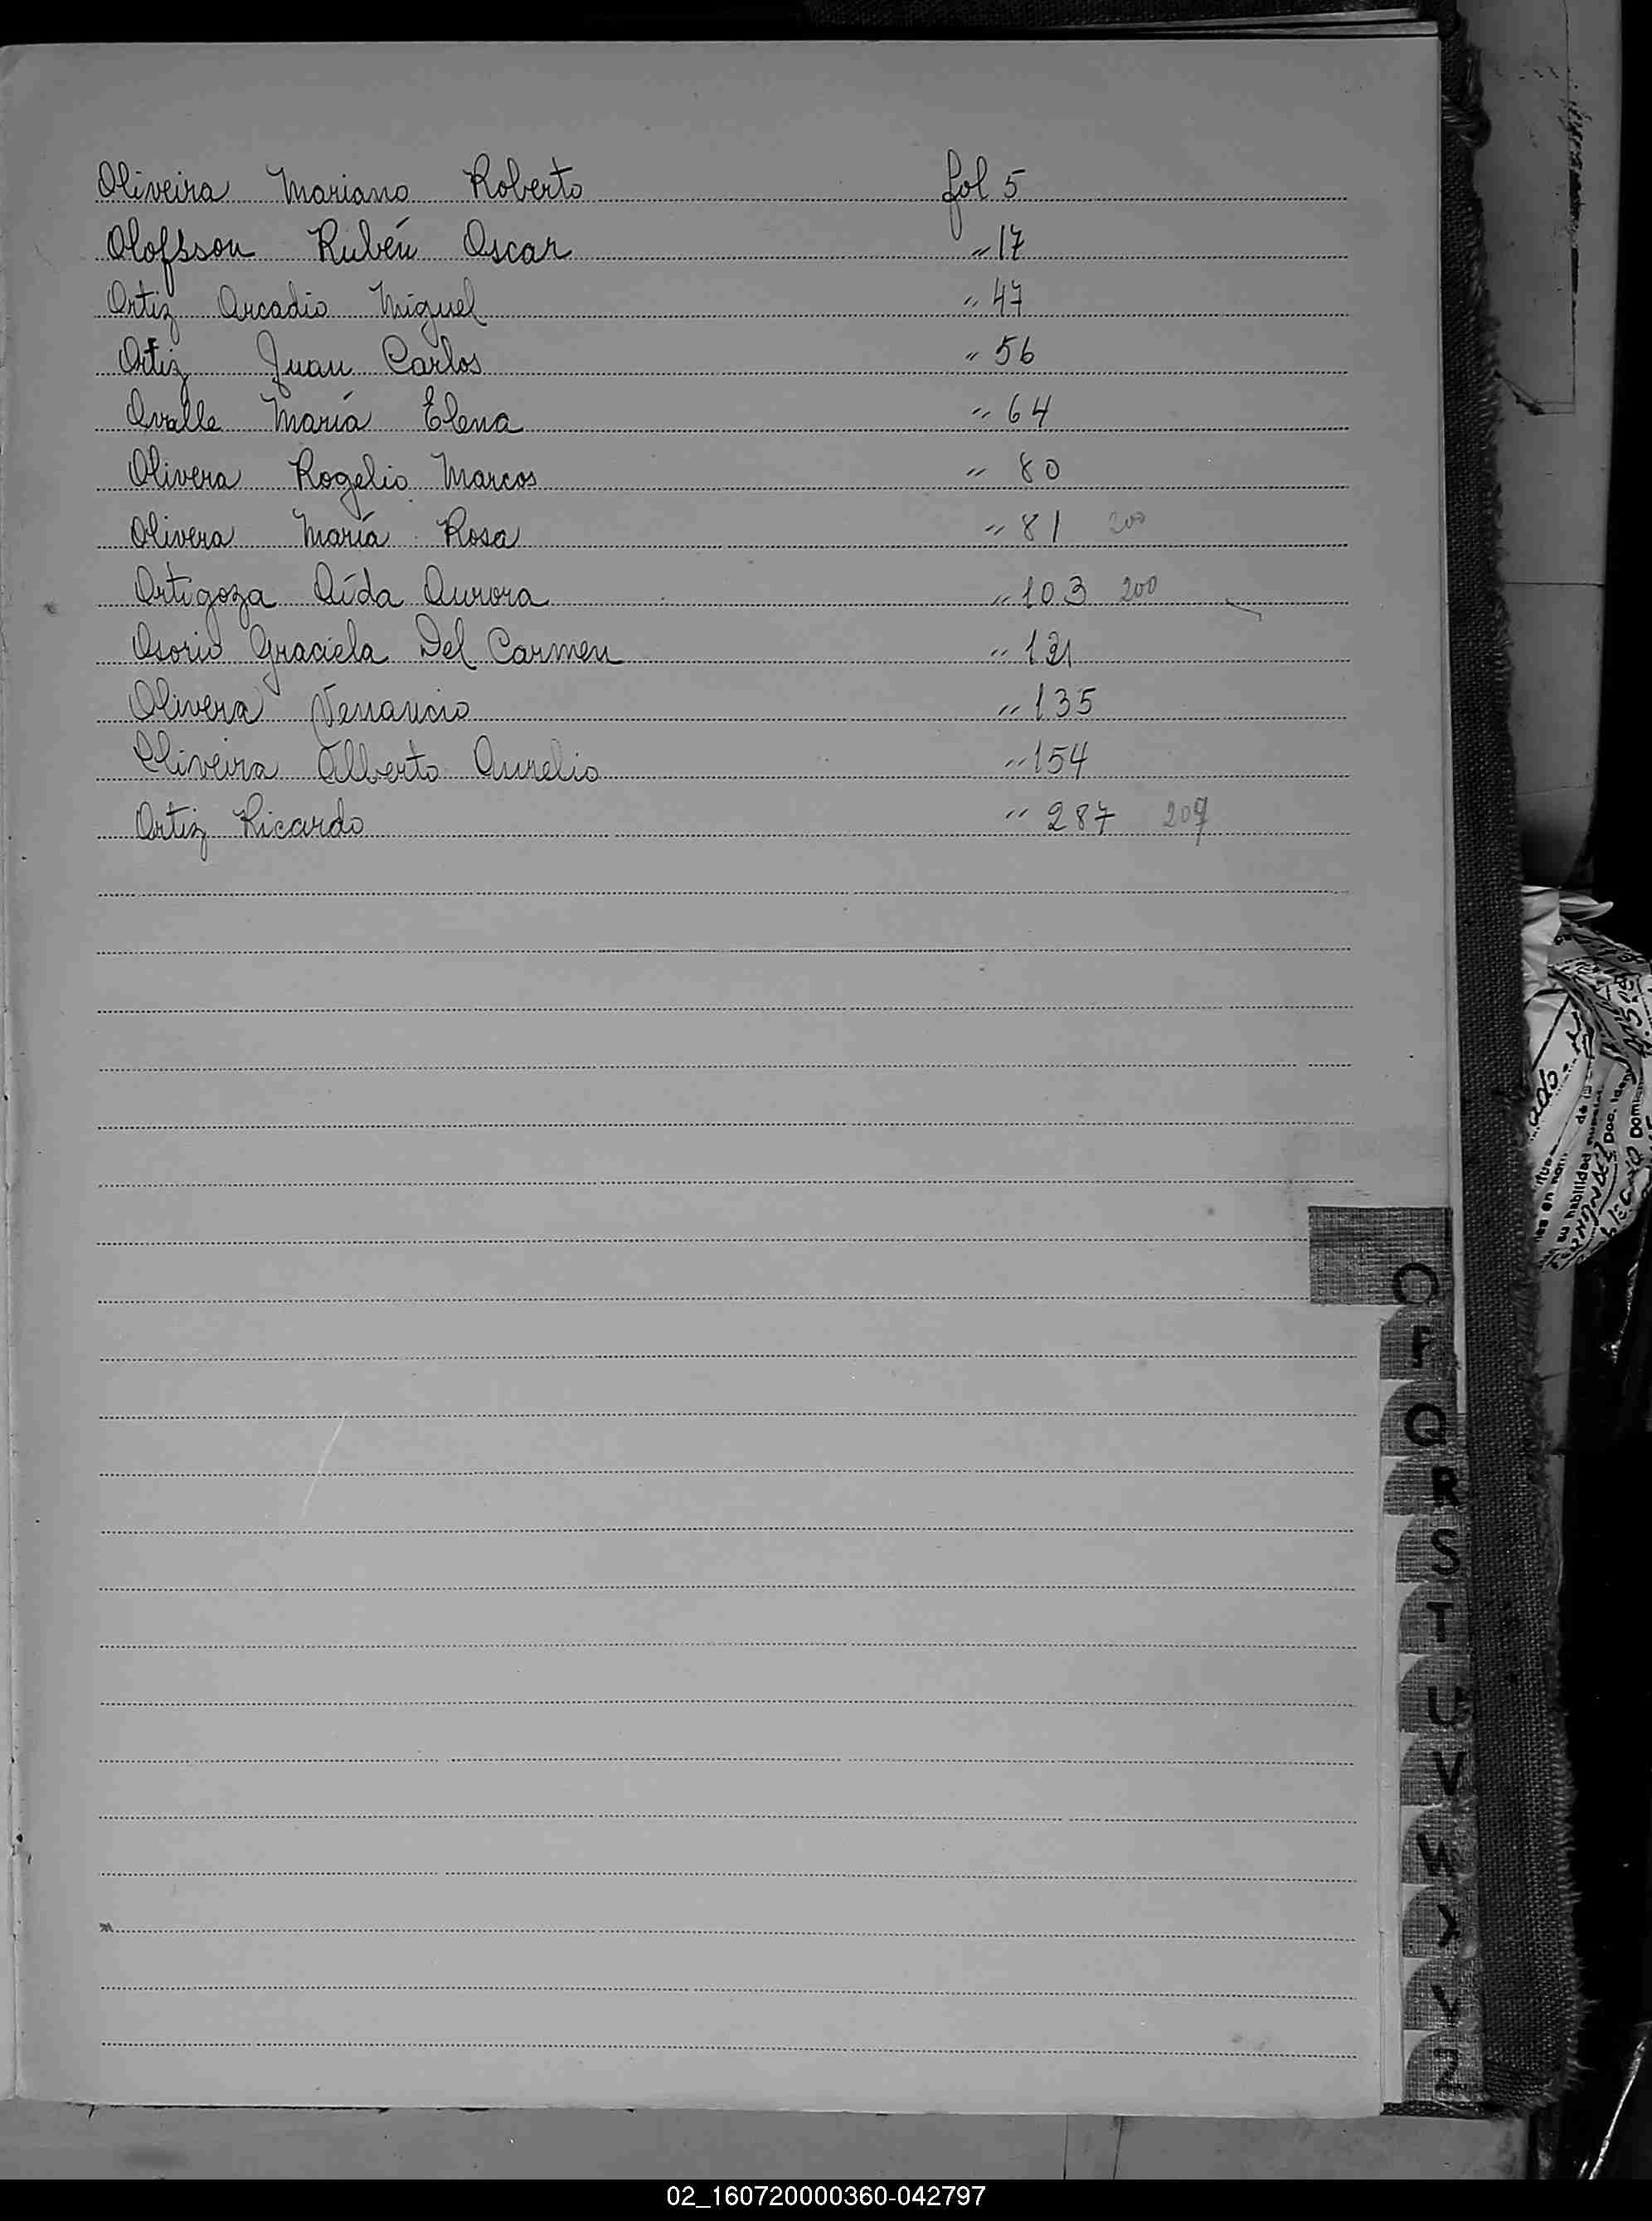 Oliveira Mariano Roberto fol 5
Olofsson Rubén Oscar " 17
Ortiz Arcadio Miguel " 47
Ortiz Juan Carlos " 56
Ovalle María Elena " 64
Olivera Rogelio Marcos " 80
Olivera María Rosa " 81 200
Ortigoza Aída Aurora " 103 200
Osorio Graciela Del Carmen " 121
Olivera Venancio " 135
Oliveira Alberto Aurelio " 154
Ortiz Ricardo " 287 207
O
P
Q
R
S
T
U
V
W
X
Y
Z
02_160720000360-042797